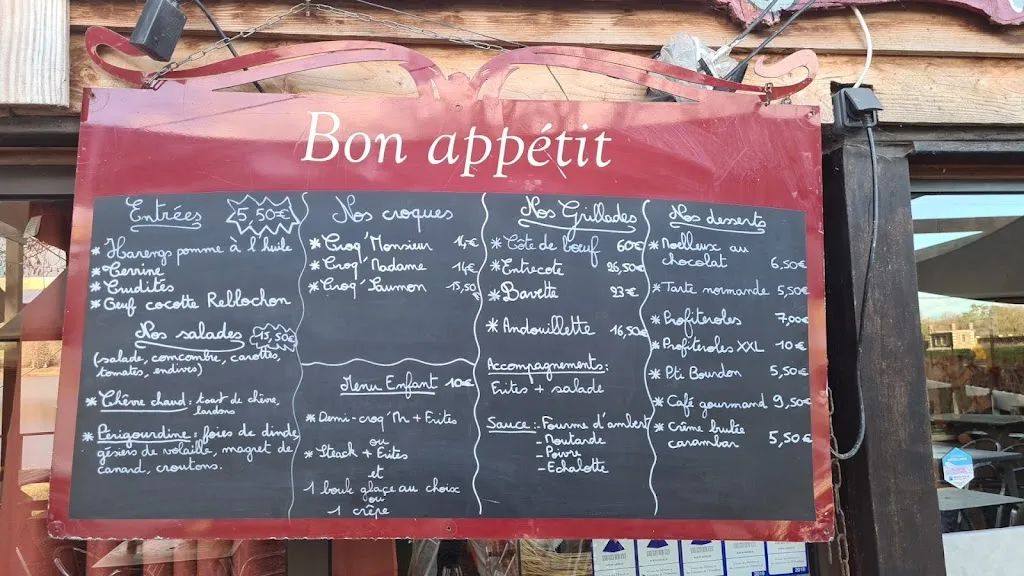 Bon appétit
Entrées 5,50€
* Hareng pomme à l'huile
* Terrine
* Crudités
* Œuf cocotte Reblochon
Nos salades 15,50€
(salade, concombre, carottes,
tomates, endives)
* Chèvre chaud : toast de chèvre,
lardons
* Périgourdine : foies de dinde,
gésiers de volaille, magret de
canard, croutons.
Nos croques
* Croq'Monsieur 14€
* Croq'Madame 14€
* Croq'Saumon 15,50
Menu Enfant 10€
* Demi-croq'M + Frites
ou
* Steack + Frites
et
1 boule glaçe au choix
ou
1 crêpe
Nos Grillades
* Côte de bœuf 60€
* Entrecote 26,50€
* Bavette 23€
* Andouillette 16,50€
Accompagnements :
Frites + salade
Sauce : - Fourme d'ambert
- Moutarde
- Poivre
- Echalotte
Nos desserts
* Moelleux au
chocolat 6,50€
* Tarte normande 5,50€
* Profiteroles 7,00€
* Profiteroles XXL 10€
* P.ti Bourdon 5,50€
* Café gourmand 9,50€
* Crème brulée
carambar 5,50€